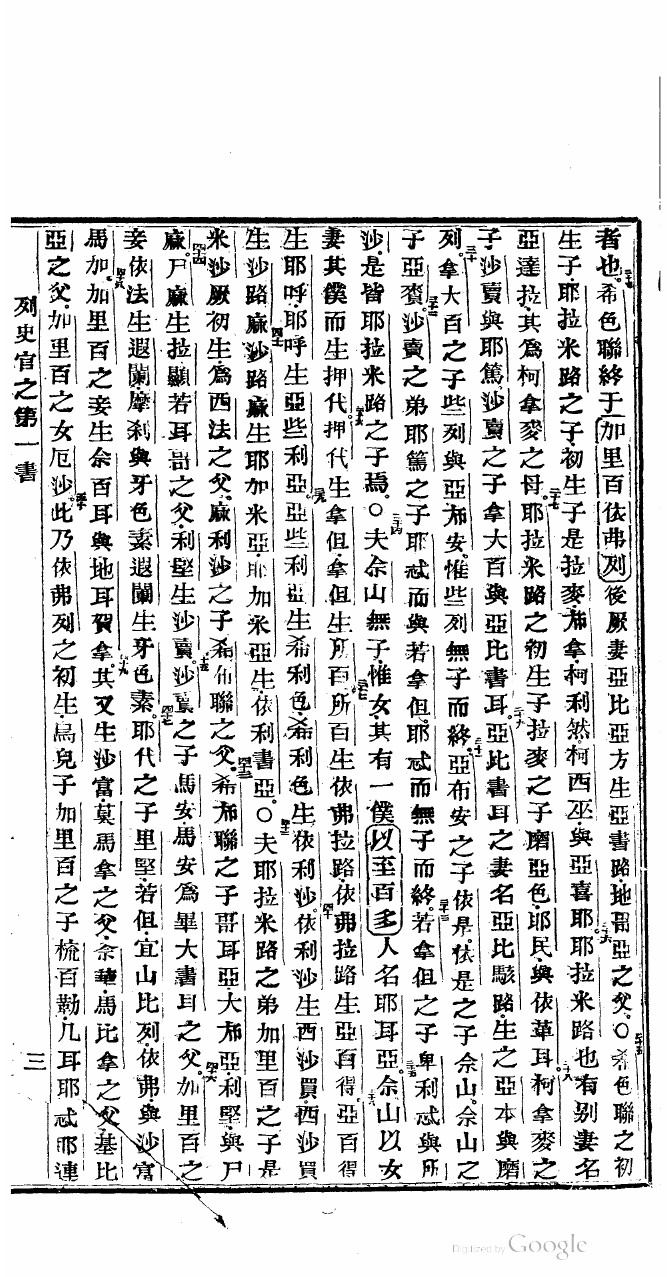 者也希色聯終于加里百依弗列後厥妻亞比亞方生亞書路地哥亞之父○希色聯之初
生子耶拉米路之子初生子是拉麥布拿柯利然柯西巫與亞喜耶耶拉米路也有别妻名
亞達拉其為柯拿麥之母耶拉米路之初生子拉麥之子磨亞色耶民與依革耳柯拿麥之
子沙賣與耶篤沙賣之子拿大百與亞比書耳亞比書耳之妻名亞比駭路生之亞本與磨
列拿大百之子些列與亞布安惟些列無子而終亞布安之子依是依是之子佘山佘山之
子亞賚沙賣之弟耶篤之子耶忒而與若拿但耶忒而無子而終若拿但之子卑利忒與所
沙是皆耶拉米路之子焉○夫佘山無子惟女其有一僕以至百多人名耶耳亞佘山以女
妻其僕而生押代押代生拿但拿但生所百所百生依弗拉路依弗拉路生亞百得亞百得
生耶呼耶呼生亞些利亞亞些利亞生希利色希利色生依利沙依利沙生西沙買西沙買
生沙路麻沙路麻生耶加米亞耶加米亞生依利書亞○夫耶拉米路之弟加里百之子是
米沙厥初生為西法之父麻利沙之子希布聯之父希布聯之子哥耳亞大布亞利堅與尸
麻尸麻生拉顯若耳哥之父利堅生沙賣沙賣之子馬安馬安為畢大書耳之父加里百之
妾依法生遐闌摩剎與牙色素遐闌生牙色素耶代之子里堅若但宜山比列依弗與沙富
馬加加里百之妾生佘百耳與地耳賀拿其又生沙富莫馬拿之父佘華馬比拿之父基比
亞之父加里百之女厄沙此乃依弗列之初生烏兒子加里百之子梳百勒几耳耶忒耶連
列史官之第一書 三
Digitized by Google